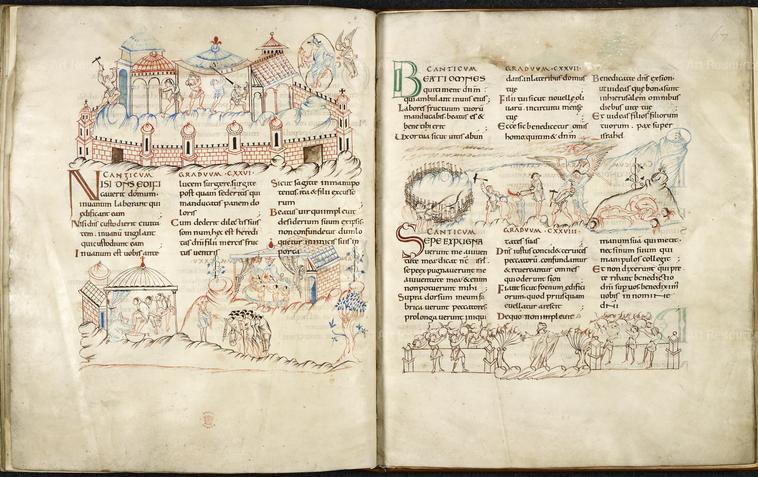 CANTICUM GRADUUM·CXXVI·
NISI DNS EDIFI
cauerit domum·
inuanum laborant qui
edificant eam
Nisi dns custodierit ciuita
tem· inuanu uigilant
qui custodiunt eam
Inuanum est uobis ante
lucem surgere surgite
post quam sederitis qui
manducatis panem do
loris
Cum dederit dilectis suis
somnum hec est heredi
tas dni filii merces fruc
tus uentris
Sicut sagitte inmanu po
tentis ita & filii excusso
rum
Beatus uir qui impleuit
desiderium suum exipsis
non confundetur dum lo
quetur inimicis suis in
porta
CANTICUM GRADUUM·CXXVII·
BEATI OMNES
qui timent dnm
qui ambulant inuiis eius
Labores fructuum tuorum
manducabis beatus es &
bene tibi erit
Uxor tua sicut uitis abun
dans inlateribus domus
tue
Filii tui sicut nouelle oli
uarum incircuitu mense
tue
Ecce sic benedicetur omnis
homo qui tim& dnm
Benedicat te dns exsion
ut uideas que bona sunt
inhierusalem omnibus
diebus uite tue
Et uideas filios filiorum
tuorum· pax super
israhel
CANTICUM GRADUUM·CXXVIII·
SEPE EXPUGNA
uerunt me aiuuen
tute mea dicat nc isrl
Sepe expugnauerunt me
aiuuentute mea &enim
non potuerunt mihi
Supra dorsum meum fa
bricauerunt peccatores
prolongauerunt iniqui
tatem suam
Dns iustus concidet ceruices
peccatorum confundantur
& reuertantur omnes
qui oderunt sion
Fiant sicut foenum edifici
orum quod priusquam
euellatur arescit
De quo non impleuit
manum suam qui metit
nec sinum suum qui
manipulos colligit
Et non dixerunt qui pre
teribant benedictio
dni super uos benediximus
uobis in nomine
dni